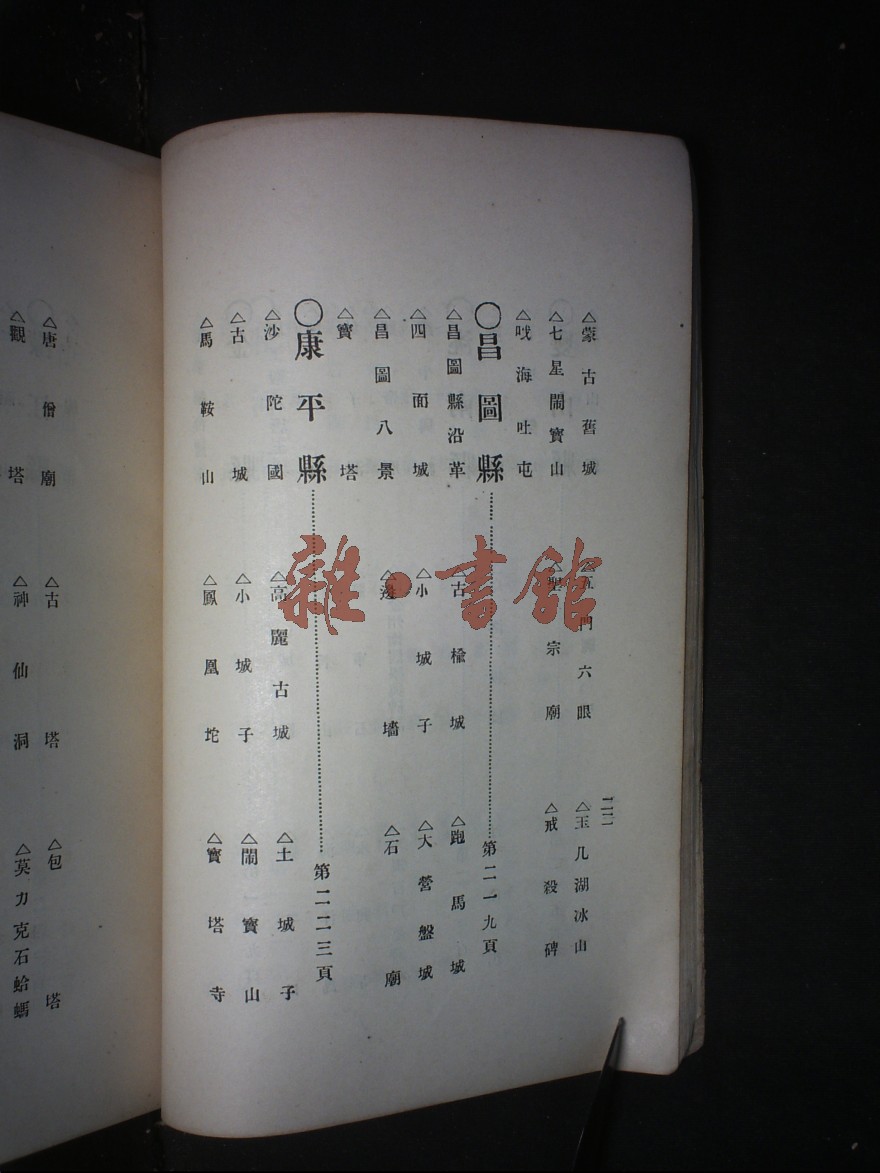 二二
△蒙古舊城 △五門六眼 △玉几湖冰山
△七星鬧寶山 △聖宗廟 △戒殺碑
△哦海吐屯
〇昌圖縣……第二一九頁
△昌圖縣沿革 △古榆城 △跑馬城
△四面城 △小城子 △大營盤城
△昌圖八景 △邊墻 △石廟
△寶塔
〇康平縣……第二二三頁
△沙陀國 △高麗古城 △土城子
△古城 △小城子 △鬧寶山
△馬鞍山 △鳳凰坨 △寶塔寺
△唐僧廟 △古塔 △包塔
△觀塔 △神仙洞 △莫力克石蛤螞
雜·書館